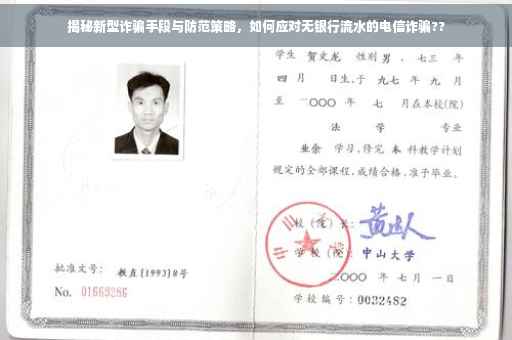 揭秘新型诈骗手段与防范策略，如何应对无银行流水的电信诈骗??
学生 贺文龙 性别 男 、七三 年
四 月 日生,于 九七 年 九 月
至 二〇〇〇 年 七 月在本校(院)
法 学 专业
业余 学习,修完 本 科教学计划
规定的全部课程,成绩合格,准予毕业。
校(院)长:
学 校(院): 中山大学
二〇〇〇 年 七 月 一 日
学校编号: 0032482
批准文号: 教直[1993]8号
No. 01669286